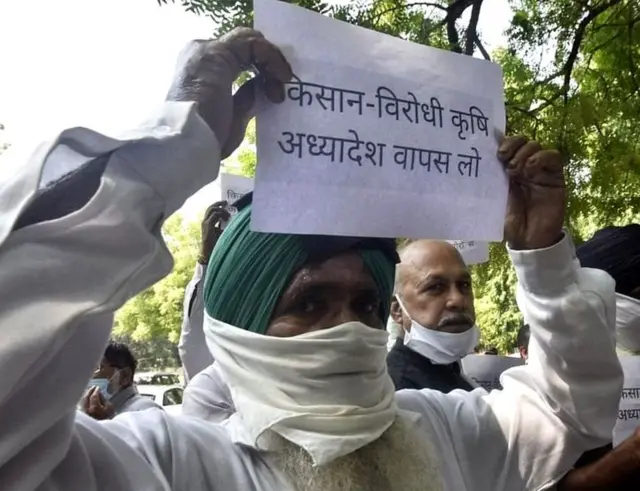 किसान-विरोधी कृषि
अध्यादेश वापस लो
किसान
अध्या